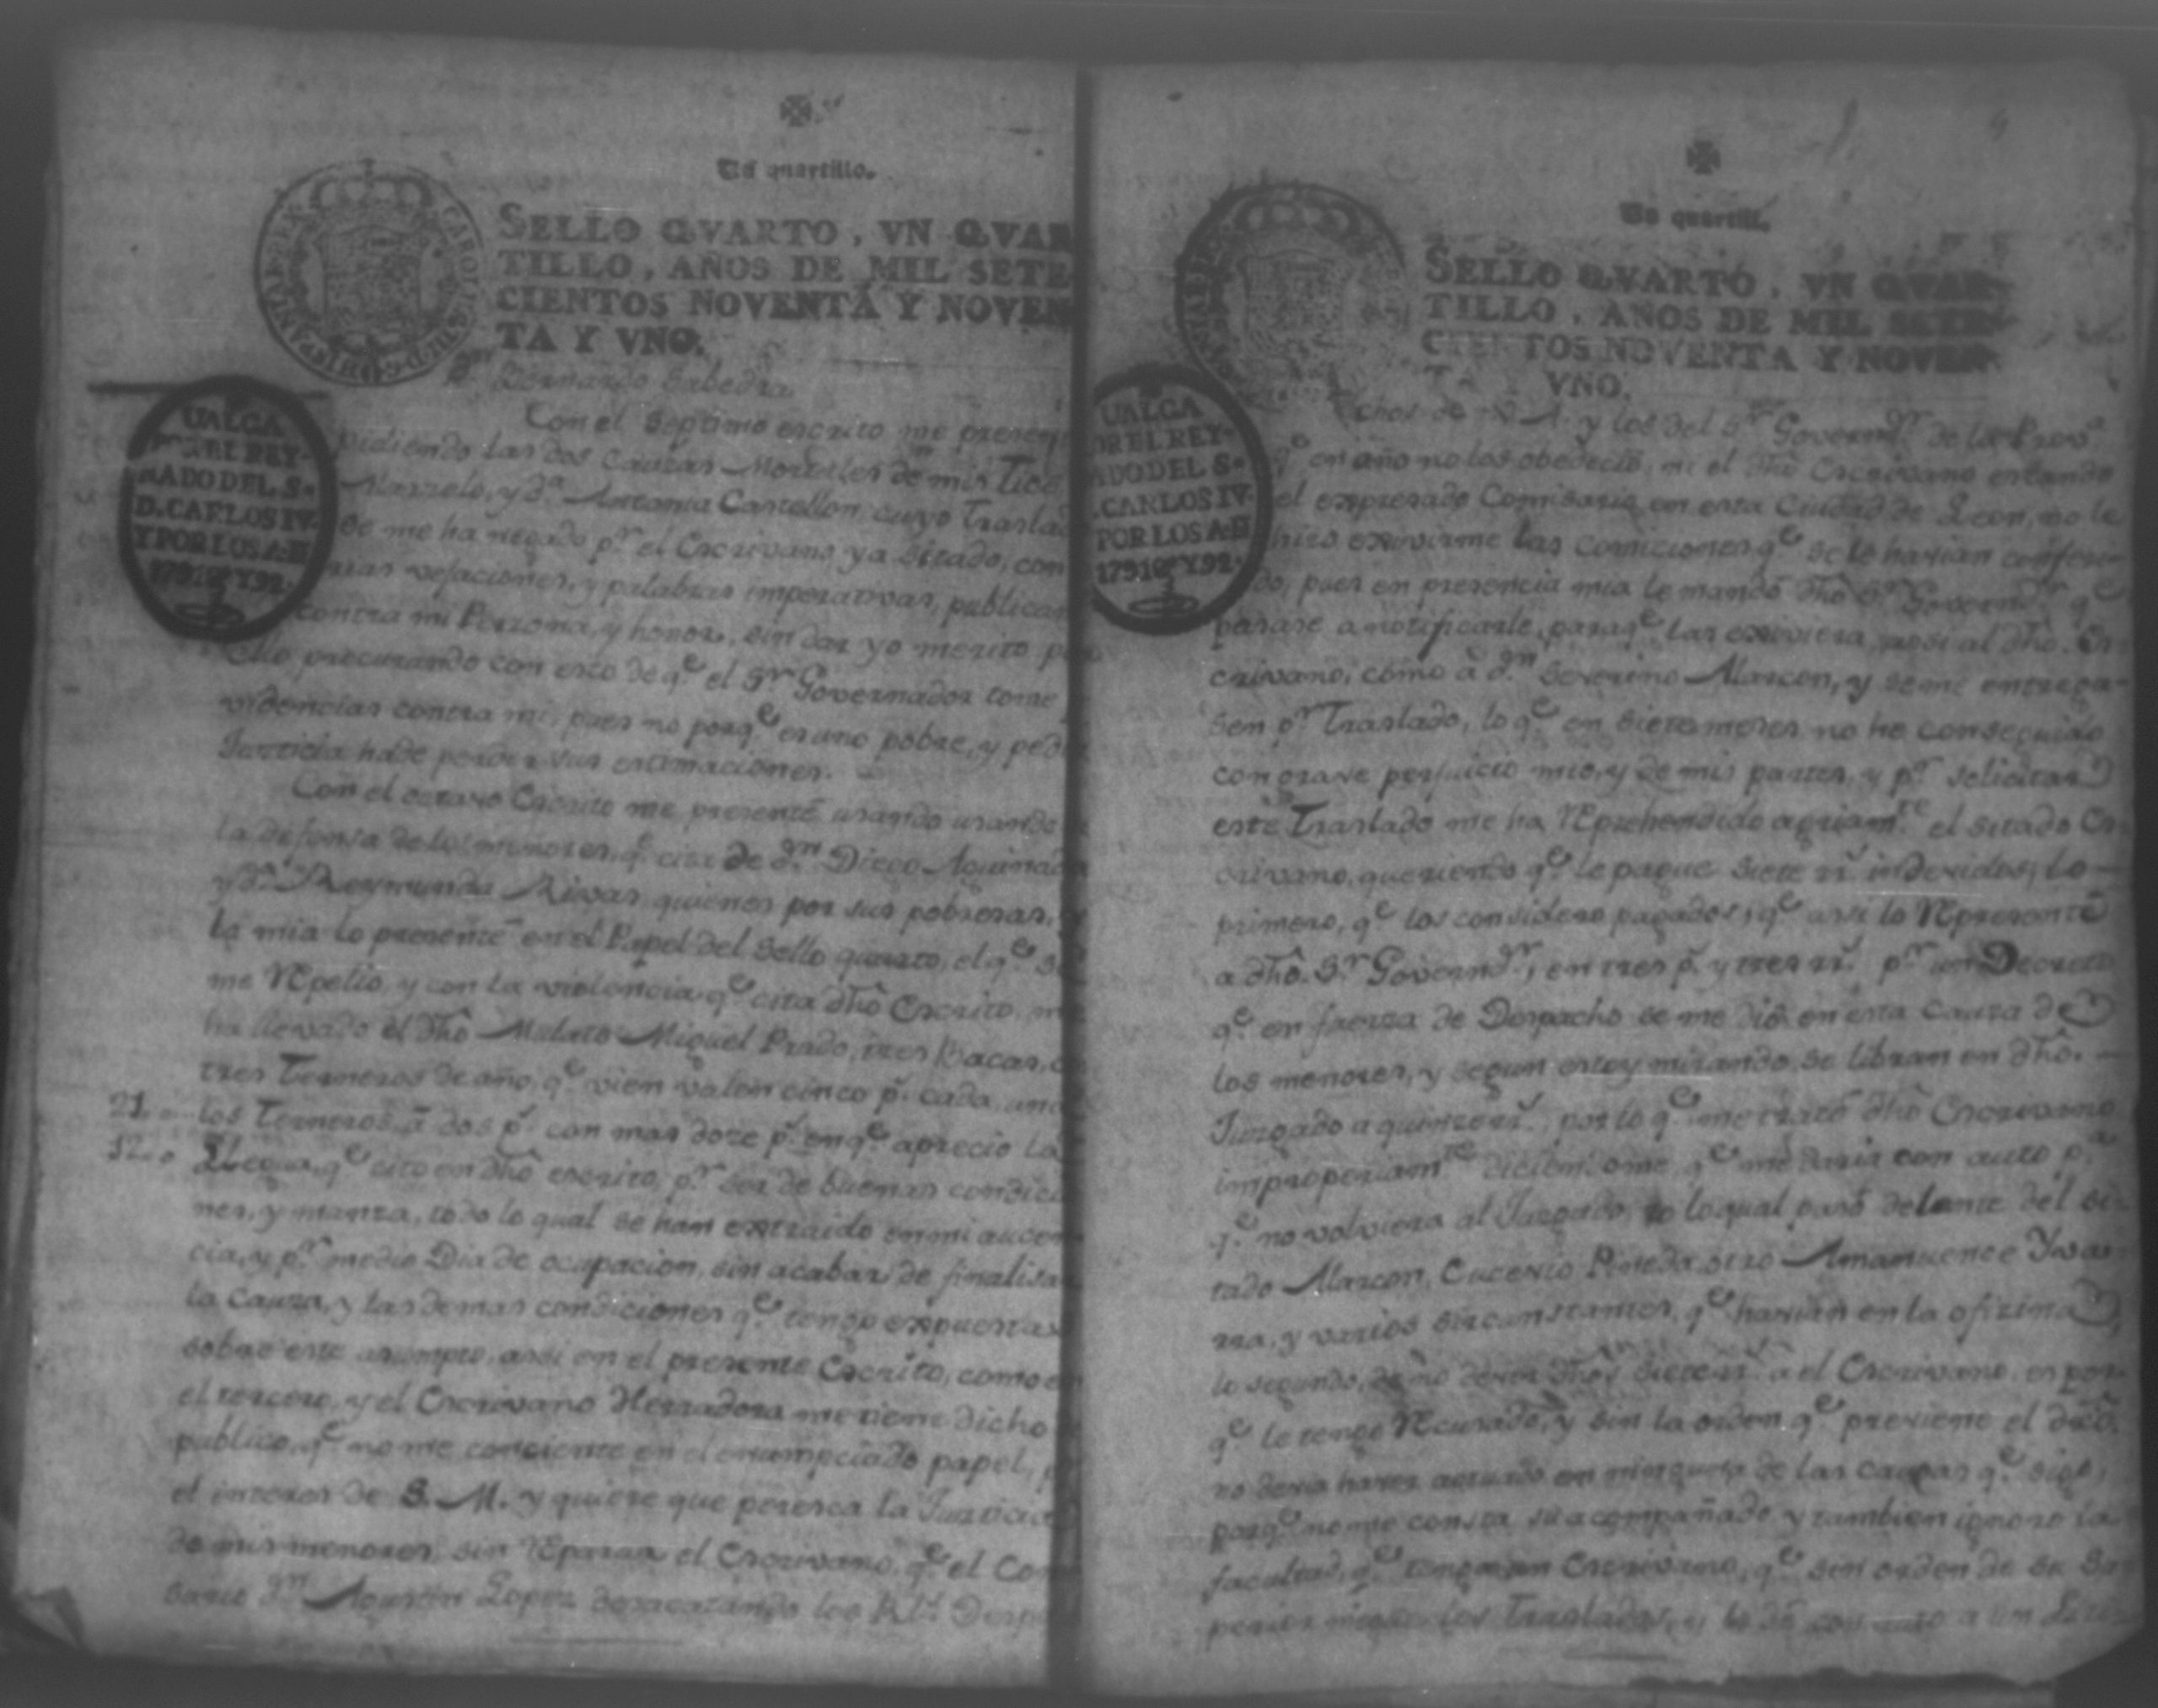 Un quartillo.
SELLO QVARTO, VN QVAR
TILLO, AÑOS DE MIL SETE
CIENTOS NOVENTA Y NOVEN
TA Y VNO.
VALGA
POR EL REY-
NADO DEL S.
D. CARLOS IV.
Y POR LOS A. D
1791 Y 92.
Dn Bernardo Sabedra.
Con el septimo escrito me present
pidiendo las dos Causas Mortales de mis Tios
Marzelo, y Da Antonia Castellon, cuyo Traslad
se me ha negado pr el Escrivano ya sitado, con
vejaciones, y palabras imperativas, publicam
contra mi Perzona, y honor, sin dar yo merito p
ello, procurando con esto de qe el Sr Governador tome
videncias contra mi, pues no porqe es uno pobre, y pedi
Justicia hade perder sus estimaciones.
Con el octavo Escrito me presenté usando usando
la defensa de los menores, qe cita de Dn Diego Aguinaga
y Da Reymunda Rivas, quienes por sus pobresas, y
la mia lo presenté en el Papel del Sello quarto, el qe se
me Repelio, y con la violencia qe cita dho Escrito, me
ha llevado el dho Mulato Miguel Prado, tres Bacas, c
tres Terneros de año, qe vien valen cinco ps. cada una
21. los Terneros â dos ps. con mas doze ps. en qe aprecio la
12. Llegua, qe cito en dho escrito, pr ser de buenas condicio
nes, y manza, todo lo qual se han extraido en mi aucen
cia, y pr medio Dia de ocupacion, sin acabar de finalisar
la Causa, y las demas condiciones qe tengo expuestas
sobre este asumpto, assi en el presente Escrito, como en
el tercero, y el Escrivano Herradora me tiene dicho
publico, qe no me conciente en el enumpciado papel, p
el interes de S. M. y quiere que peresca la Justicia
de mis menores, sin Reparar el Escrivano, qe el Co
Dn Agustin Lopez desacatando los Rls Desp
Un quartill.
SELLO QVARTO, VN QVAR
TILLO, AÑOS DE MIL SETE
CIENTOS NOVENTA Y NOVEN
TA Y VNO.
VALGA
POR EL REY-
NADO DEL S.
D. CARLOS IV.
POR LOS A. D
1791 Y 92.
chos de V. A. y los del Sr Governdr de la Prova
qe en año no los obedecio, ni el dho Escrivano estando
el expresado Comisario en esta Ciudad de Leon, no le
hizo exivirme las comiciones qe se le havian conferi-
do, pues en presencia mia le mandó dho Sr Governdr qe
pasase a notificarle, paraqe las exiviera, assi al dho. Es
crivano, como â Dn Severino Alarcon, y se me entrega-
sen pr Traslado, lo qe en siete meses no he conseguido
con grave perjuicio mio, y de mis partes, y pr solicitar
este Traslado me ha Reprehendido agriamte el sitado Es
crivano, queriendo qe le pague siete rs indevidos; lo
primero, qe los considero pagados, qe assi lo Representé
a dho. Sr Governdr, en tres ps. y tres rs. pr un Decreto
qe en fuerza de Despacho se me dió en esta Causa de
los menores, y segun estoy mirando, se libran en dho.
Juzgado a quinze rs, por lo qe me trató dho Escrivano
improperiamte diciendome qe me daria con auto pa
qe no volviera al Juzgado, lo qual pasó delante del si
tado Alarcon, Eucevio Pineda, otro Amanuence Ywar
ra, y varios sircunstantes, qe havian en la ofizina,
lo segundo, de no dever dhos siete rs a el Escrivano, es por-
qe le tengo Recusado, y sin la orden qe previene el dro.
no devia haver actuado en ninguna de las causas qe sigo,
porqe no me consta su acompañado, y tambien ignoro la
facultad, qe tenga un Escrivano, qe sin orden de su Su
perior niegue los Traslados, y